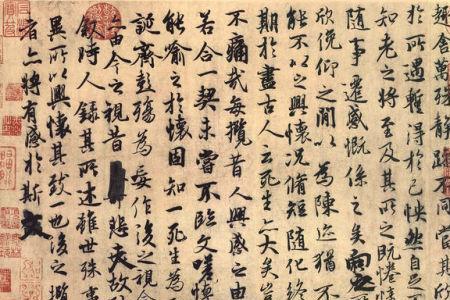 趣舍萬殊靜躁不同當其欣
於所遇蹔得於己怏然自足
知老之將至及其所之既惓
隨事遷感慨係之矣向之
欣俛仰之閒以為陳迹猶不
能不以之興懷況脩短隨化終
期於盡古人云死生亦大矣豈
不痛哉每攬昔人興感之由
若合一契未嘗不臨文嗟悼
能喻之於懷固知一死生為
誕齊彭殤為妄作後之視今
亦由今之視昔悲夫故
敘時人錄其所述雖世殊事
異所以興懷其致一也後之攬
者亦將有感於斯文